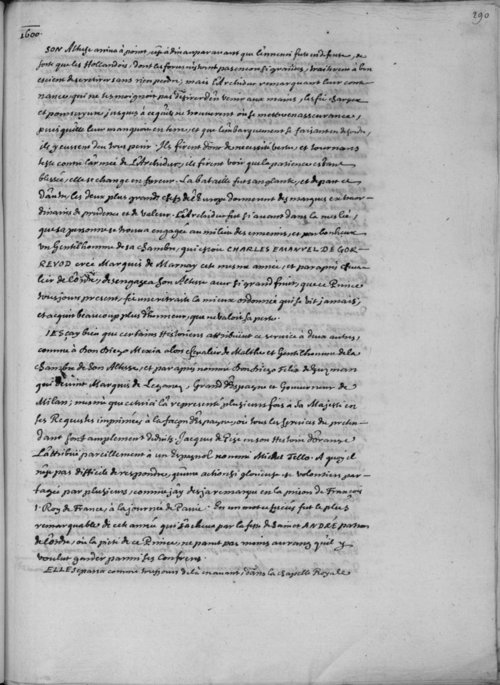 290
1600.
SON Altesse arriva à point, un peu auparavant que l'ennemi fut en defense, de
sorte que les Hollandois, dont les forces n'estoient pas encor si grandes,
se retirer sans rien perdre; mais l'Archiduc remarquant leur
qui ne tesmoignoit pas desirer d'en venir aux mains, les fit charger
et poursuivre jusques à ce qu'ils ne trouverent où se mettre en asseurance,
puis qu'elle leur manquoit en terre, et que l'embarquement se faisant en desordre,
ils y eussent deu tous perir. Ils firent donc de necessité vertu, et tournans
teste contre l'armée de l'Archiduc, ils firent voir que la patience estant
blessée, elle se change en fureur. La bataille fut sanglante, et de part et
d'autre, les deux plus grands chefs de l'Europe donnerent des marques extraor-
dinaires de prudence et de valeur. L'Archiduc fut si avant dans la meslée,
que sa personne se trouva engagée au milieu des ennemis, et par bonheur
un Gentilhomme de sa chambre, qui estoit CHARLES EMANUEL DE GOR-
REVOD creé Marquis de Marnay cette mesme année, et par apres Cheva-
lier de l'ordre, desengagea son Altesse avec si grand fruit, que ce Prince
tousjours present, fit une retraite la mieux ordonnée qui se vit jamais,
et acquit beaucoup plus d'honneur, que ne valoit sa perte.
IE SCAY bien que certains Historiens attribuent ce service à deux autres,
comme à Don Diego Mexia alors Chevalier de Malthe et Gentilhomme de la
Chambre de Son Altesse, et par apres nommé Don Diego Felix de Guzman
qui devint Marquis de Leganez, Grand d'Espagne et Gouverneur de
Milan; mesme que cettuici l'a representé plusieurs fois à Sa Majesté en
ses Requestes imprimées, à la façon d'Espagne, où tous les services du preten-
dant sont amplement deduits. Jacques de Pise en son Histoire d'Orange
l'attribue pareillement à un Espagnol nommé Michel Tello. A quoi il
n'est pas difficile de respondre, qu'une action si glorieuse se volontiers par-
tagée par plusieurs, comme j'ay desja remarqué en la prison de François
I. Roy de France, à la journée de Pavie. En un mot ce succes fut le plus
remarquable de cette année qui s'acheva par la feste de Saint ANDRE patron
de l'ordre, où la pieté de ce Prince ne parut pas moins au rang qu'il y
voulut garder parmi ses Confreres.
ELLE se passa comme tousjours de là en avant, dans la chapelle Royale